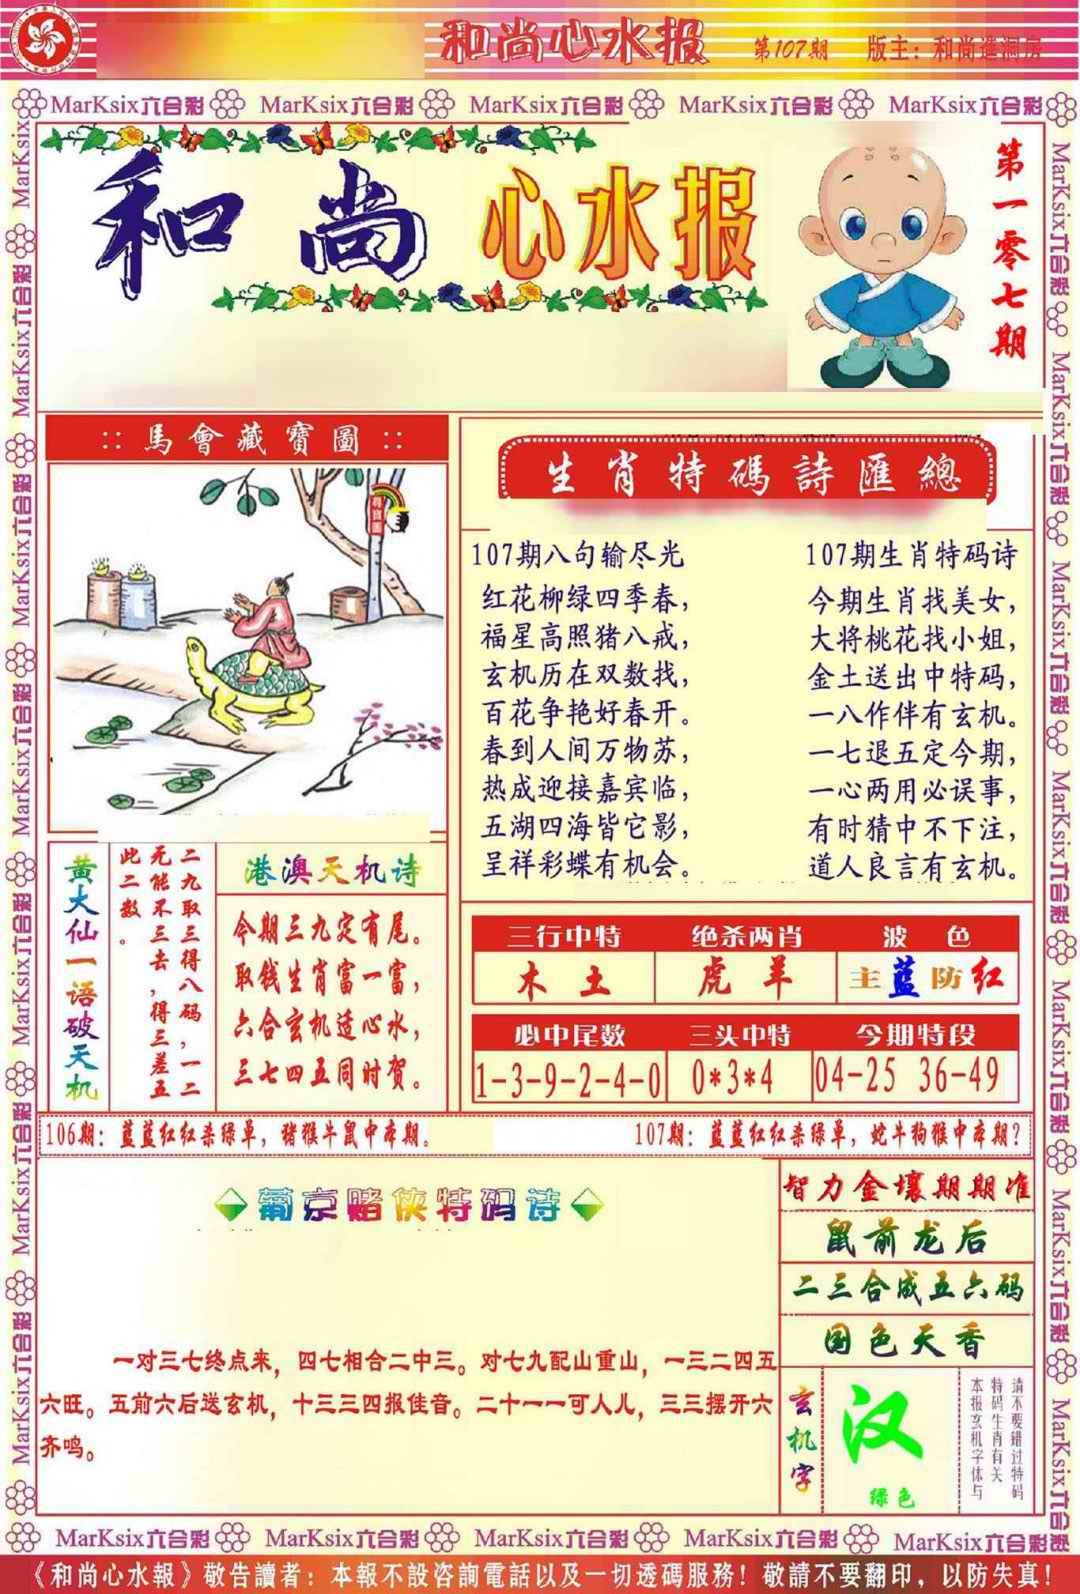 和尚心水报 第107期 版主：和尚進洞房
MarKsix六合彩 MarKsix六合彩 MarKsix六合彩 MarKsix六合彩 MarKsix六合彩
和尚 心水报
第一零七期
:: 馬會藏寶圖 ::
生肖特碼詩匯總
107期八句输尽光
红花柳绿四季春，
福星高照猪八戒，
玄机历在双数找，
百花争艳好春开。
春到人间万物苏，
热成迎接嘉宾临，
五湖四海皆它影，
呈祥彩蝶有机会。
107期生肖特码诗
今期生肖找美女，
大将桃花找小姐，
金土送出中特码，
一八作伴有玄机。
一七退五定今期，
一心两用必误事，
有时猜中不下注，
道人良言有玄机。
黄大仙一语破天机
二九取三得八码，一二
无能不三去，得三差五
此二数。
港澳天机诗
今期三九定有尾。
取钱生肖富一富，
六合玄机适心水，
三七四五同时贺。
三行中特 绝杀两肖 波色
木土 虎羊 主蓝防红
必中尾数 三头中特 今期特段
1-3-9-2-4-0 0*3*4 04-25 36-49
106期：蓝蓝红红杀绿单，猪猴牛鼠中本期。 107期：蓝蓝红红杀绿单，蛇牛狗猴中本期？
葡京赌侠特码诗
一对三七终点来，四七相合二中三。对七九配山重山，一三二四五
六旺。五前六后送玄机，十三三四报佳音。二十一一可人儿，三三摆开六
齐鸣。
智力金壤期期准
鼠前龙后
二三合成五六码
国色天香
玄机字
汉
绿色
请不要错过特码
特码生肖有关
本报玄机字体与
MarKsix六合彩 MarKsix六合彩 MarKsix六合彩 MarKsix六合彩 MarKsix六合彩
《和尚心水報》敬告讀者：本報不設咨詢電話以及一切透碼服務！敬請不要翻印，以防失真！